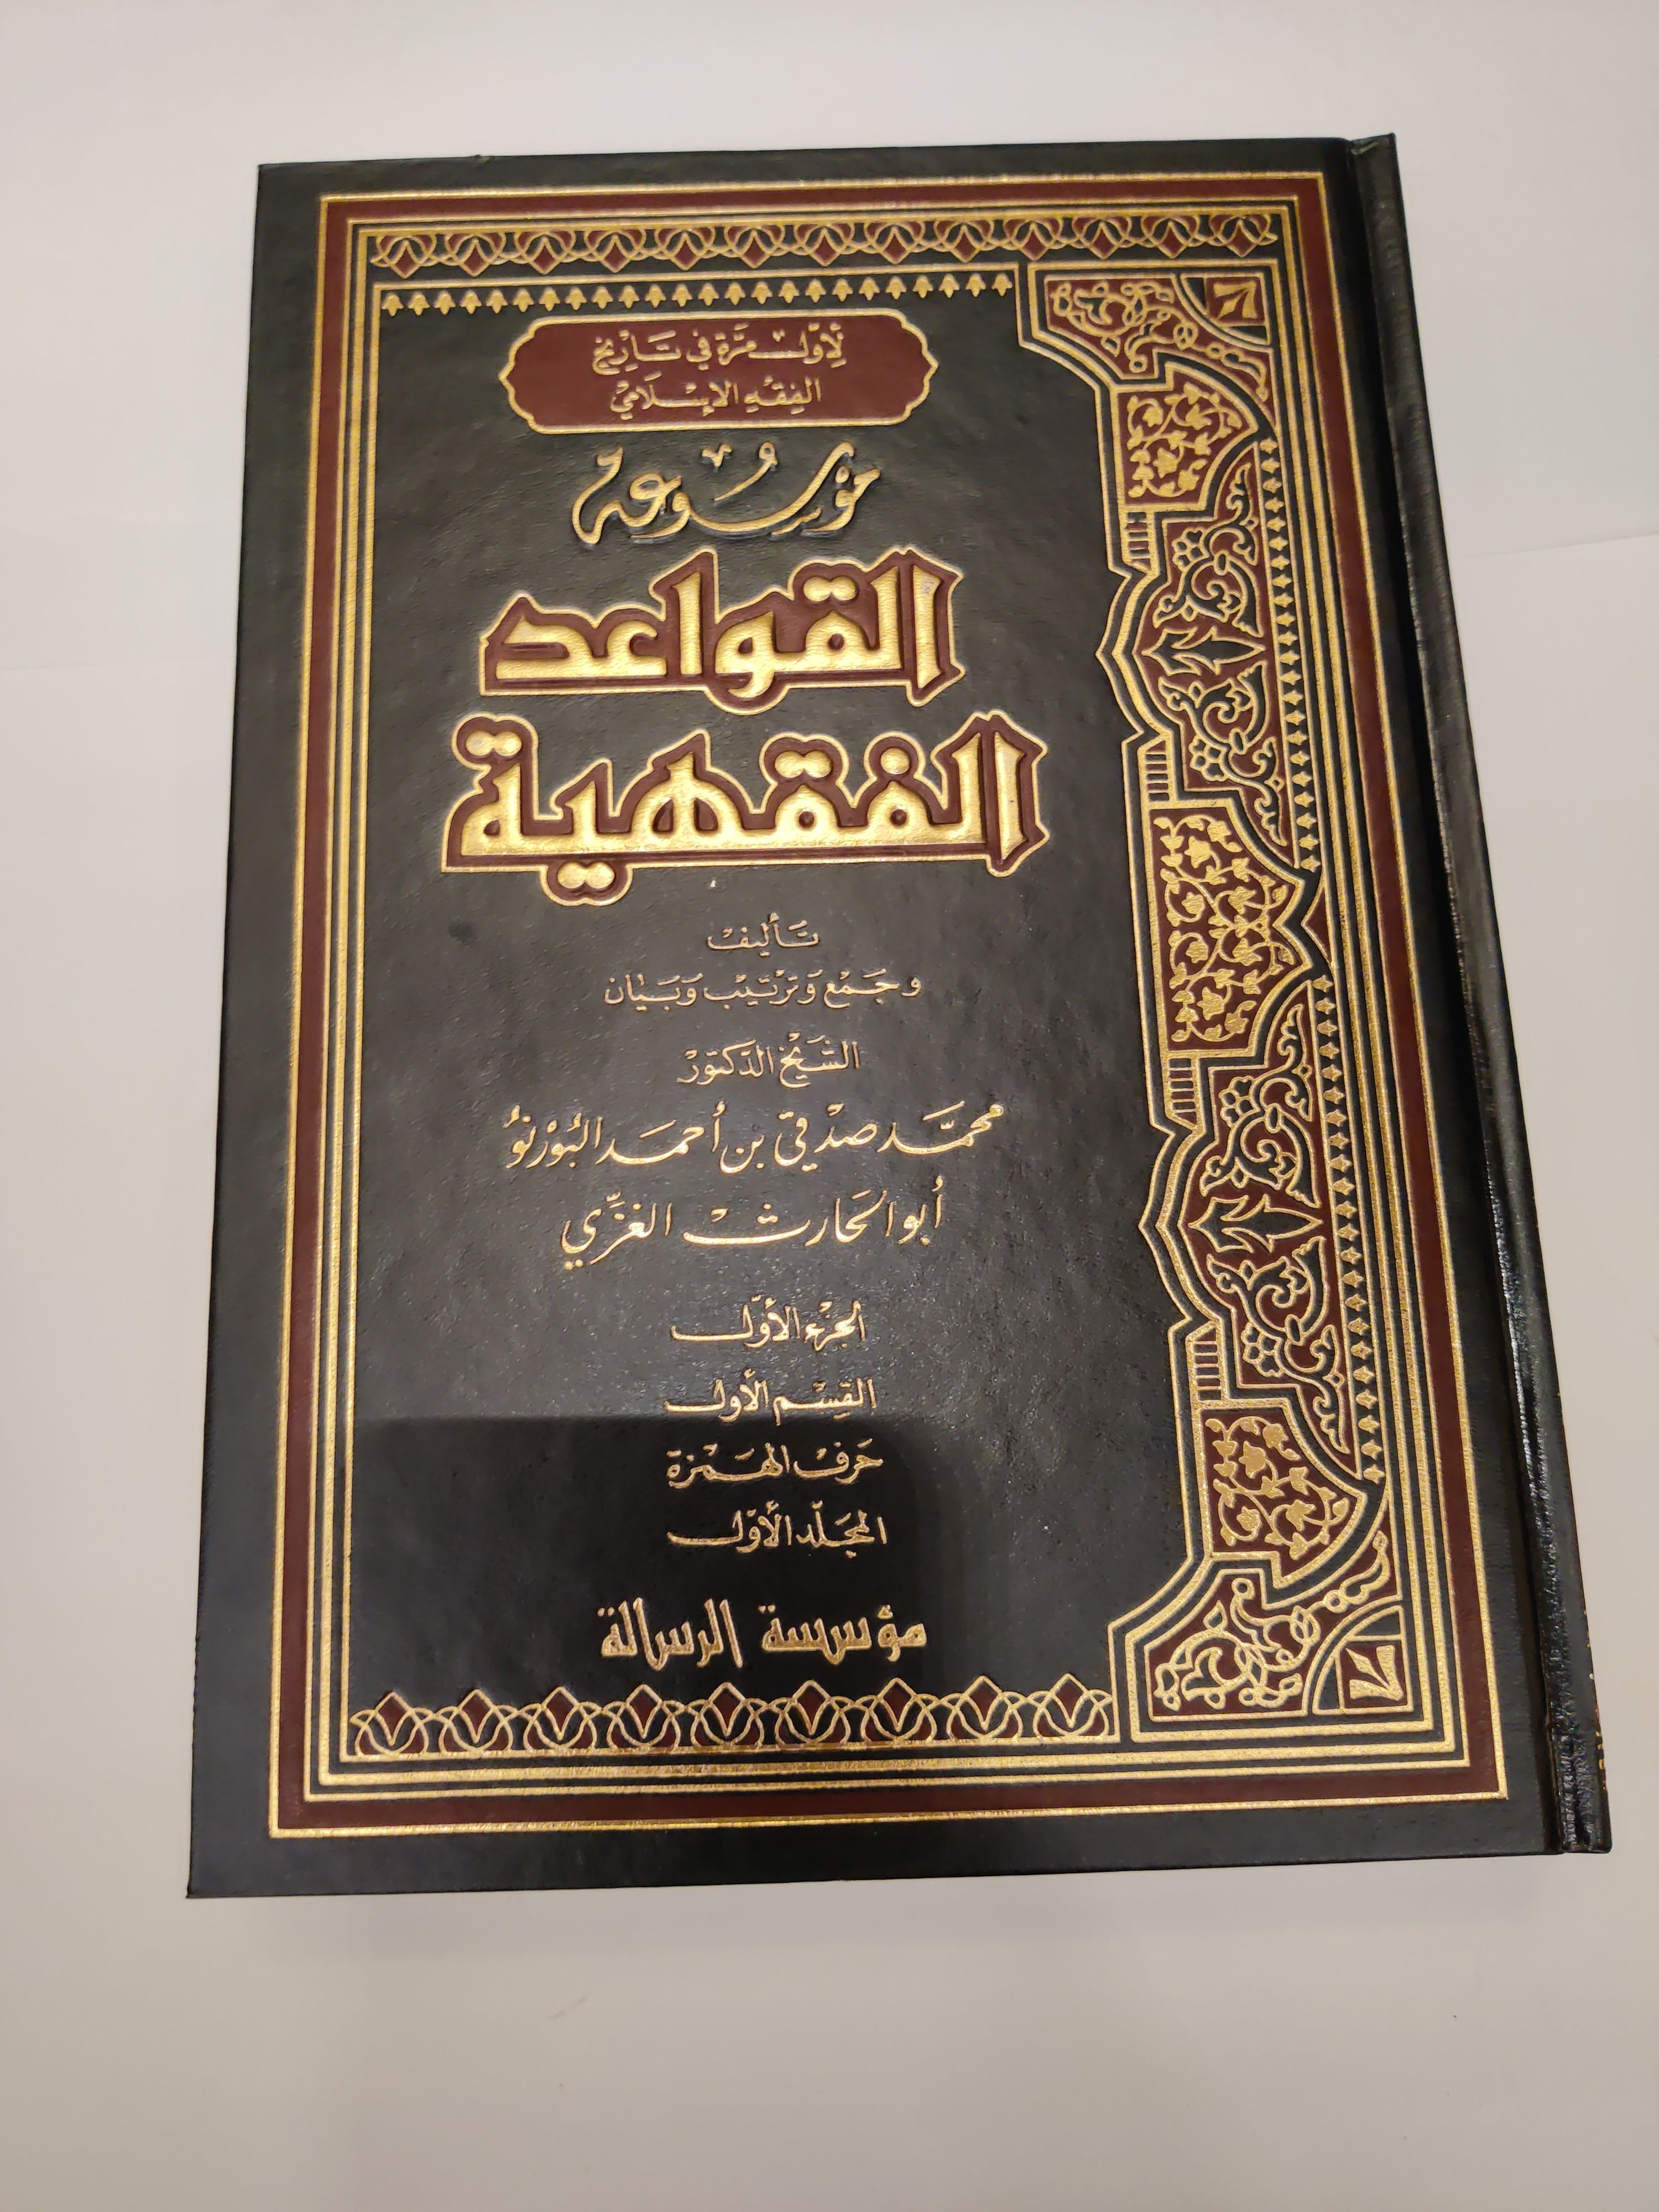 لِأوّل مَرّة في تَاريْخ
الفِقهِ الإسْلَامي
مَوْسُوعَة
القواعد
الفقهية
تَأليفْ
وَجَمْع وَترْتيْب وَبَيَان
الشَيْخ الدّكتوْر
محمَّد صِدْقي بن أحمَد البُوْرنوُ
أبو الحَارثْ الغَزّي
الجزْء الأوّل
القِسْم الأول
حَرفْ الهَمْزة
المجَلّد الأوّل
مؤسسة الرسالة